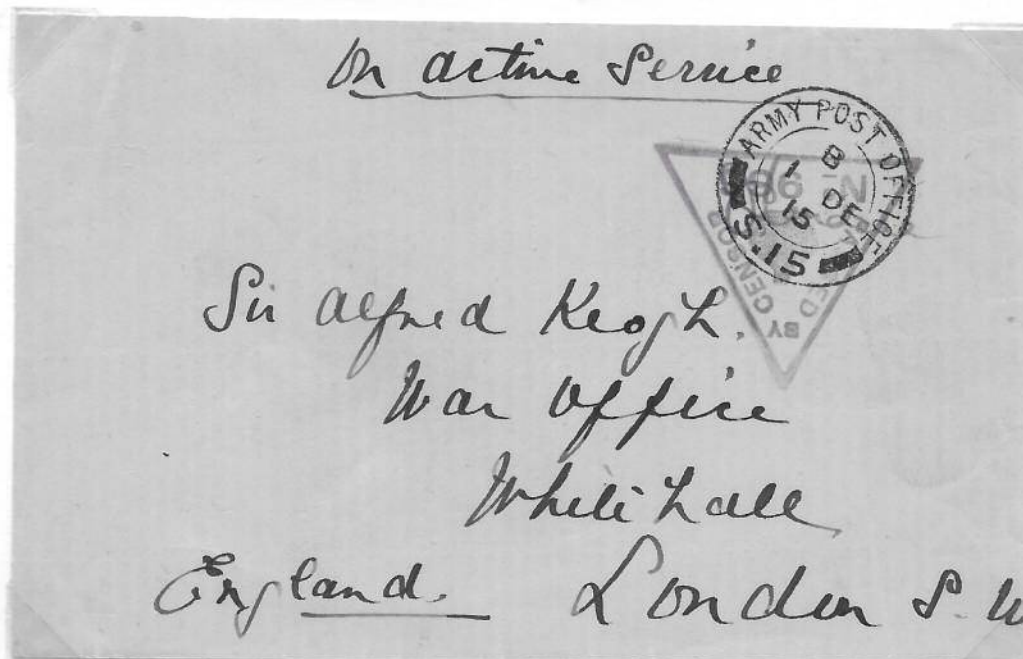 On active Service
ARMY POST OFFICE
B
1 DE
15
S.15
BY CENSOR
Sir Alfred Keogh.
War Office
Whitehall
England. London S.W